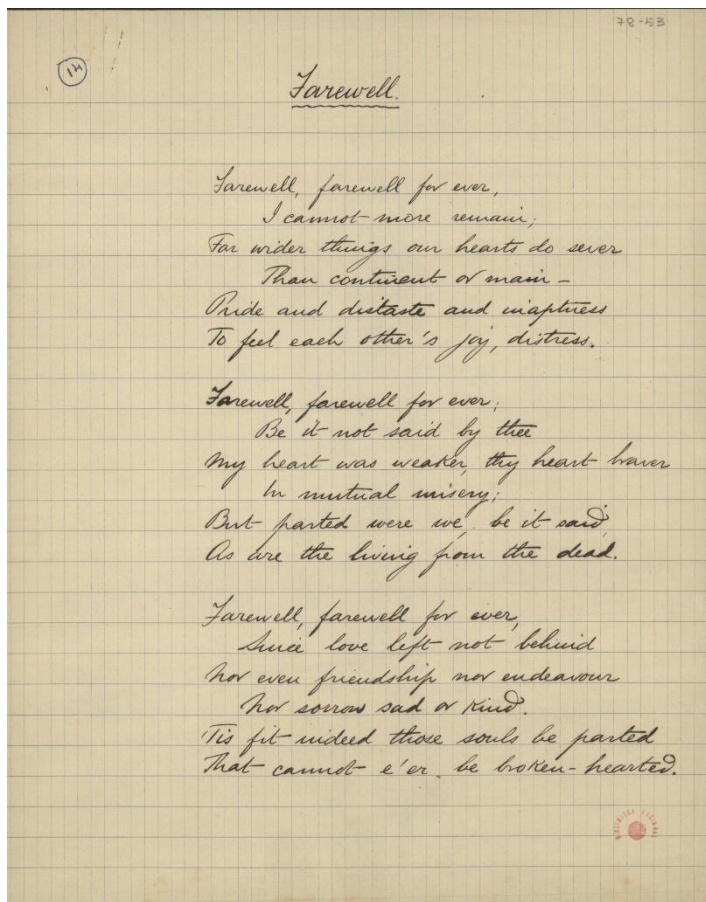 78-53
14
Farewell.
Farewell, farewell for ever,
I cannot more remain;
For wider things our hearts do sever
Than continent or main –
Pride and distaste and inaptness
To feel each other's joy, distress.
Farewell, farewell for ever;
Be it not said by thee
My heart was weaker, thy heart braver
In mutual misery;
But parted were we, be it said,
As are the living from the dead.
Farewell, farewell for ever,
Since love left not behind
Nor even friendship nor endeavour
Nor sorrow sad or kind.
'Tis fit indeed those souls be parted
That cannot e'er be broken-hearted.
BIBLIOTECA NACIONAL